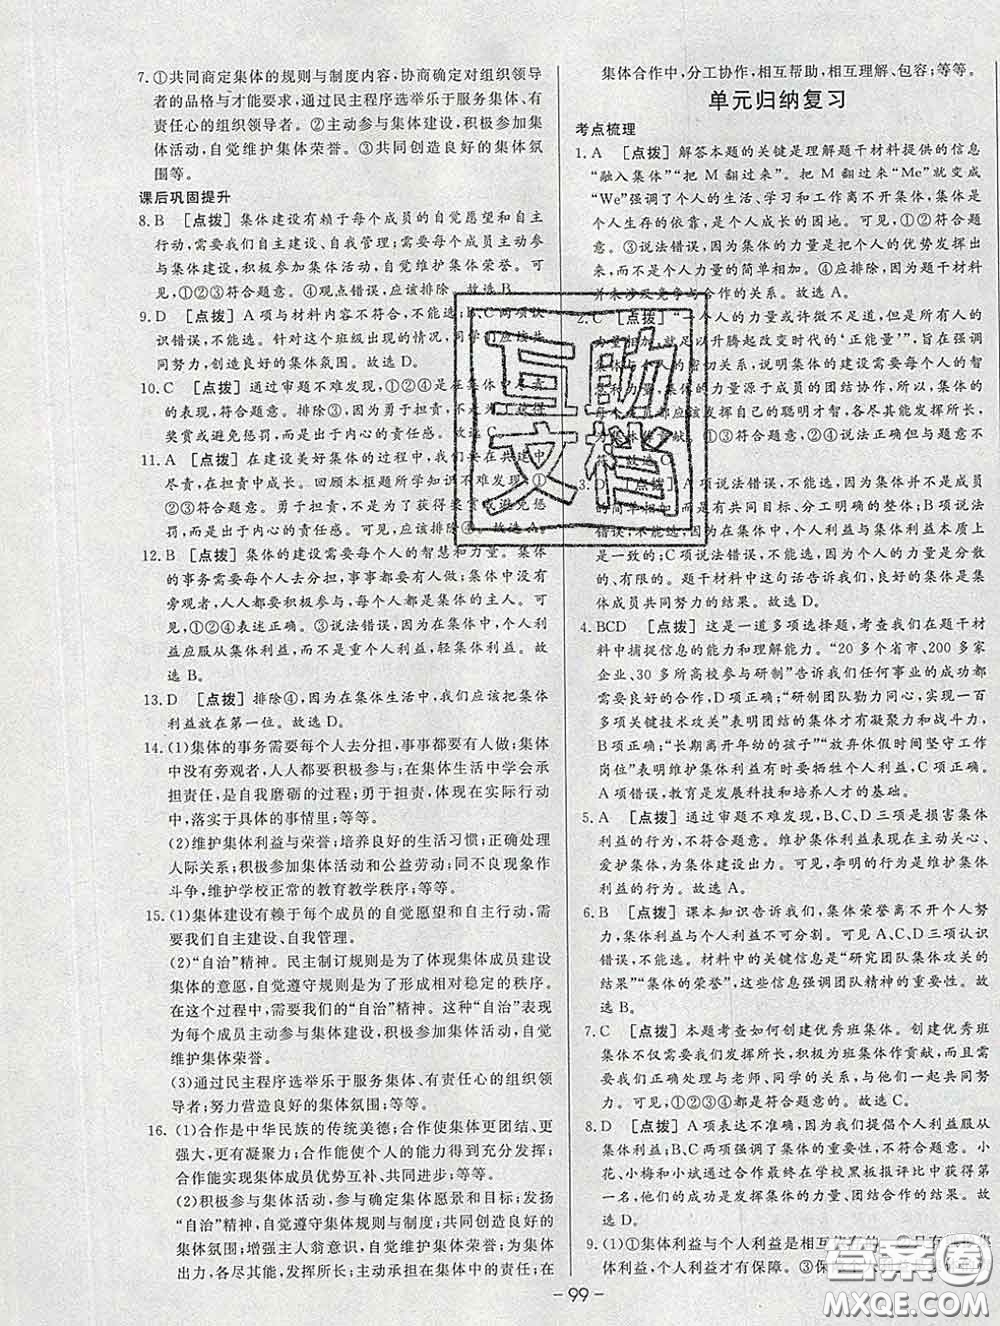 7. ①共同商定集体的规则与制度内容,协商确定对组织领导
者的品格与才能要求,通过民主程序选举乐于服务集体、有
责任心的组织领导者。②主动参与集体建设,积极参加集
体活动,自觉维护集体荣誉。③共同创造良好的集体氛
围;等等。
课后巩固提升
8. B [点拨] 集体建设有赖于每个成员的自觉愿望和自主
行动,需要我们自主建设、自我管理;需要每个成员主动参
与集体建设,积极参加集体活动,自觉维护集体荣誉。可
见,①②③符合题意。④观点错误,应该排除。故选 B。
9. D [点拨] A项与材料内容不符合,不能选;B、C两项认
识错误,不能选。针对这个班级出现的情况,同学们应该共
同努力,创造良好的集体氛围。故选 D。
10. C [点拨] 通过审题不难发现,①②④是在集体中尽责
的表现,符合题意。排除③,因为勇于担责,不是为了获得
奖赏或避免惩罚,而是出于内心的责任感。故选 C。
11. A [点拨] 在建设美好集体的过程中,我们要在共建中
尽责,在担责中成长。回顾本框题所学知识不难发现,①
②③符合题意。勇于担责,不是为了获得奖赏或避免惩
罚,而是出于内心的责任感。可见,④应该排除。故选 A。
12. B [点拨] 集体的建设需要每个人的智慧和力量。集体
的事务需要每个人去分担,事事都要有人做;集体中没有
旁观者,人人都要积极参与,每个人都是集体的主人。可
见,①②④表述正确。③说法错误,在集体生活中,个人利
益应服从集体利益,克服极端个人主义,克服自由散漫。
故选 B。
13. D [点拨] 排除④,因为在集体生活中,我们应该把集体
利益放在第一位。故选 D。
14. (1)集体的事务需要每个人去分担,事事都要有人做;集体
中没有旁观者,人人都要积极参与;在集体生活中学会承
担责任,是自我磨砺的过程;勇于担责,体现在实际行动
中,落实于具体的事情里;等等。
(2)维护集体利益与荣誉;培养良好的生活习惯;正确处理
人际关系;积极参加集体活动和公益劳动;同不良现象作
斗争,维护学校正常的教育教学秩序;等等。
15. (1)集体建设有赖于每个成员的自觉愿望和自主行动,需
要我们自主建设、自我管理。
(2)“自治”精神。民主制订规则是为了体现集体成员建设
集体的意愿,自觉遵守规则是为了形成相对稳定的秩序。
在这个过程中,需要我们的“自治”精神。这种“自治”表现
为每个成员主动参与集体建设,积极参加集体活动,自觉
维护集体荣誉。
(3)通过民主程序选举乐于服务集体、有责任心的组织领
导者;努力营造良好的集体氛围;等等。
16. (1)合作是中华民族的传统美德;合作使集体更团结、更
强大,更有凝聚力;合作能使个人的能力得到充分发挥;
合作能实现集体成员优势互补、共同进步;等等。
(2)积极参与集体活动,参与确定集体愿景和目标;发扬
“自治”精神,自觉遵守集体规则与制度;共同创造良好的
集体氛围;增强主人翁意识,自觉维护集体荣誉;为集体
出力,各尽其能,发挥所长;主动承担在集体中的责任;在
集体合作中,分工协作,相互帮助,相互理解、包容;等等。
单元归纳复习
考点梳理
1. A [点拨] 解答本题的关键是理解题干材料提供的信息
“融入集体”“把 M 翻过来”。把 M 翻过来“Me”就变成
“We”强调了个人的生活、学习和工作离不开集体,集体是
个人生存的依靠,是个人成长的园地。可见,①②符合题
意。③说法错误,因为集体的力量是把个人的优势发挥出
来,不是个人力量的简单相加。④应排除,因为题干材料
并未涉及竞争与合作的关系。故选 A。
2. C [点拨] “一个人的力量或许微不足道,但所有人的
力量相加,就足以升腾起改变时代的‘正能量’”,旨在强调
集体与个人的密切关系,说明集体的建设需要每个人的智
慧和力量,集体的力量源于成员的团结协作,所以,不管能
力大小,每个成员都应该发挥自己的聪明才智,各尽其能发挥所长,
为集体作贡献。①③符合题意;②④说法正确但与题意不
符合。故选 C。
3. D [点拨] A项说法错误,不能选,因为集体并不是成员
的简单相加,而是有共同目标、分工明确的整体;B项说法
错误,不能选,因为在集体中,个人利益与集体利益本质上
是一致的;C项说法错误,不能选,因为个人力量是分散
的、有限的。题干材料中这句话告诉我们,良好的集体是集
体成员共同努力的结果。故选 D。
4. BCD [点拨] 这是一道多项选择题,考查我们在题干材
料中捕捉信息的能力和理解能力。“20 多个省市、200 多家
企业、30 多所高校参与研制”告诉我们任何事业的成功都
需要良好的合作,D 项正确;“研制团队勠力同心,实现一百
多项关键技术攻关”表明团结的集体才有凝聚力和战斗力,
B项正确;“长期离开年幼的孩子”“放弃休假时间坚守工作
岗位”表明维护集体利益有时要牺牲个人利益,C 项正确。
A项错误,教育是发展科技和培养人才的基础。
5. A [点拨] 通过审题不难发现,B、C、D三项是损害集体
利益的行为,不符合题意。维护集体利益表现在主动关心、
爱护集体,为集体建设出力。可见,李明的行为是维护集体
利益的行为。故选 A。
6. B [点拨] 课本知识告诉我们,集体荣誉离不开个人努
力,集体利益与个人利益不可分割。可见 A、C、D三项认识
错误,不能选。材料中的关键信息是“研究团队集体攻关的
结果”“集体的荣誉”,这些信息强调团队精神的重要性。故
选 B。
7. C [点拨] 本题考查如何创建优秀班集体。创建优秀班
集体不仅需要我们发挥所长,积极为班集体作贡献,而且需
要我们正确处理与老师、同学的关系,和他们一起共同创
建。可见,①②③④都是符合题意的。故选 C。
8. D [点拨] A项表达不准确,因为我们提倡个人利益服
从集体利益;B、C两项强调了竞争的重要性,不符合题意。小
花、小梅和小斌通过合作最终在学校黑板报评比中获得第
一名,他们的成功是集体的力量、团结合作的结果。
故选 D。
9. (1)①集体利益与个人利益是相互依存的。②只有
体利益,个人利益才有保障。③保
- 99 -
互助
文档
答案圈
MXQE.COM